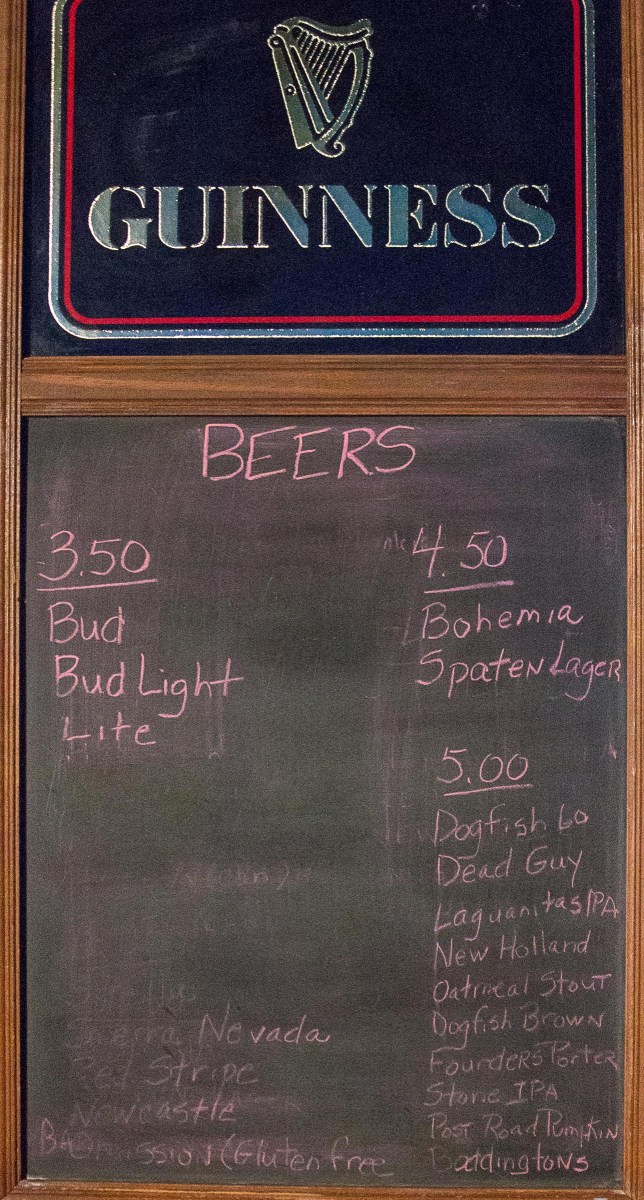 GUINNESS
BEERS
3.50
Bud
Bud Light
Lite
Sierra Nevada
Red Stripe
Newcastle
(Gluten free
4.50
Bohemia
Spaten Lager
5.00
Dogfish 60
Dead Guy
Laguanitas IPA
New Holland
Oatmeal Stout
Dogfish Brown
Founders Porter
Stone IPA
Post Road Pumpkin
Boddingtons